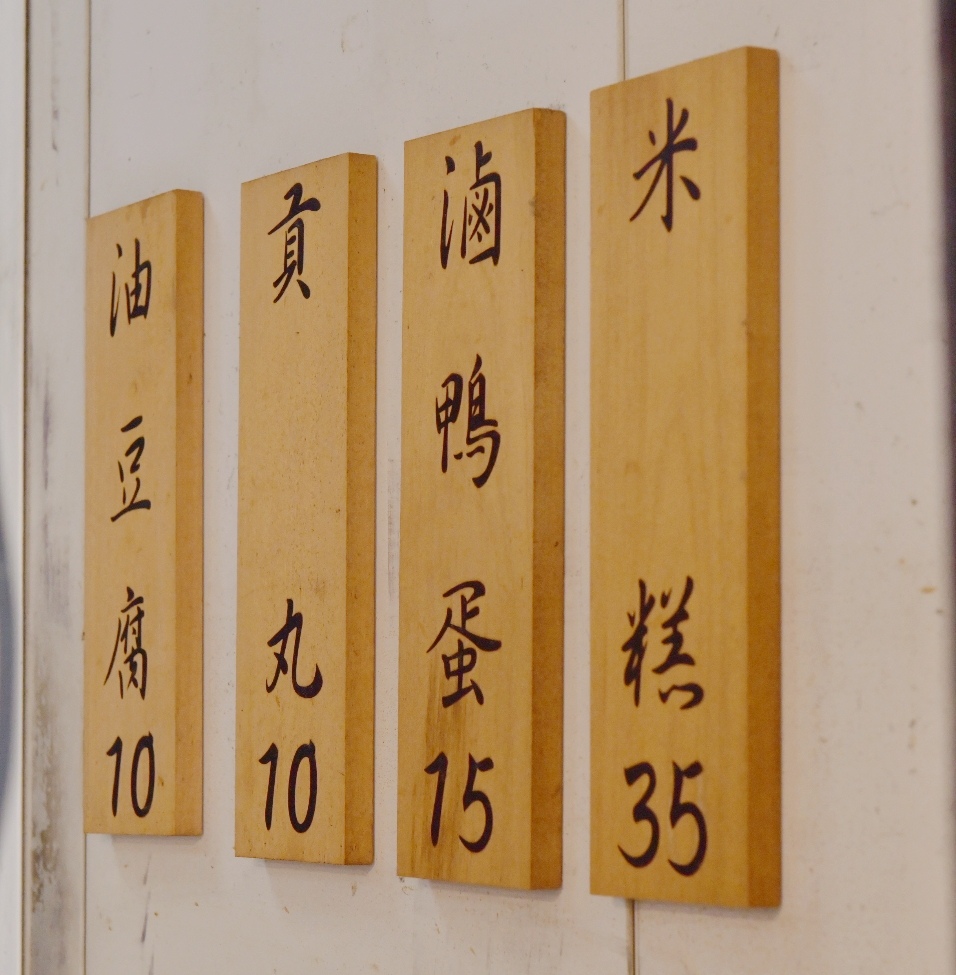 米糕35
滷鴨蛋15
貢丸10
油豆腐10